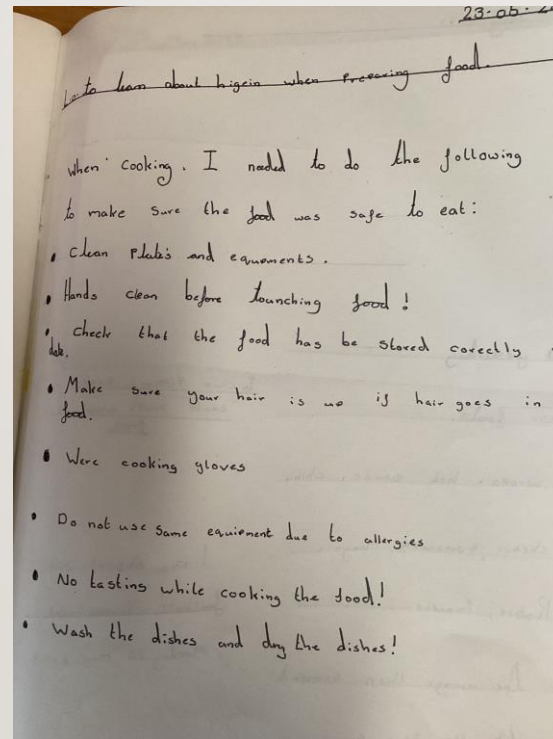 23-06-2
Lo: to learn about higein when Preparing food.
when cooking. I needed to do the following
to make sure the food was safe to eat:
• clean Plates and equements.
• Hands clean before tounching food!
• check that the food has be stored corectly
date.
• Make sure your hair is up if hair goes in
food.
• Were cooking gloves
• Do not use same equiement due to allergies
• No tasting while cooking the food!
• Wash the dishes and dry the dishes!